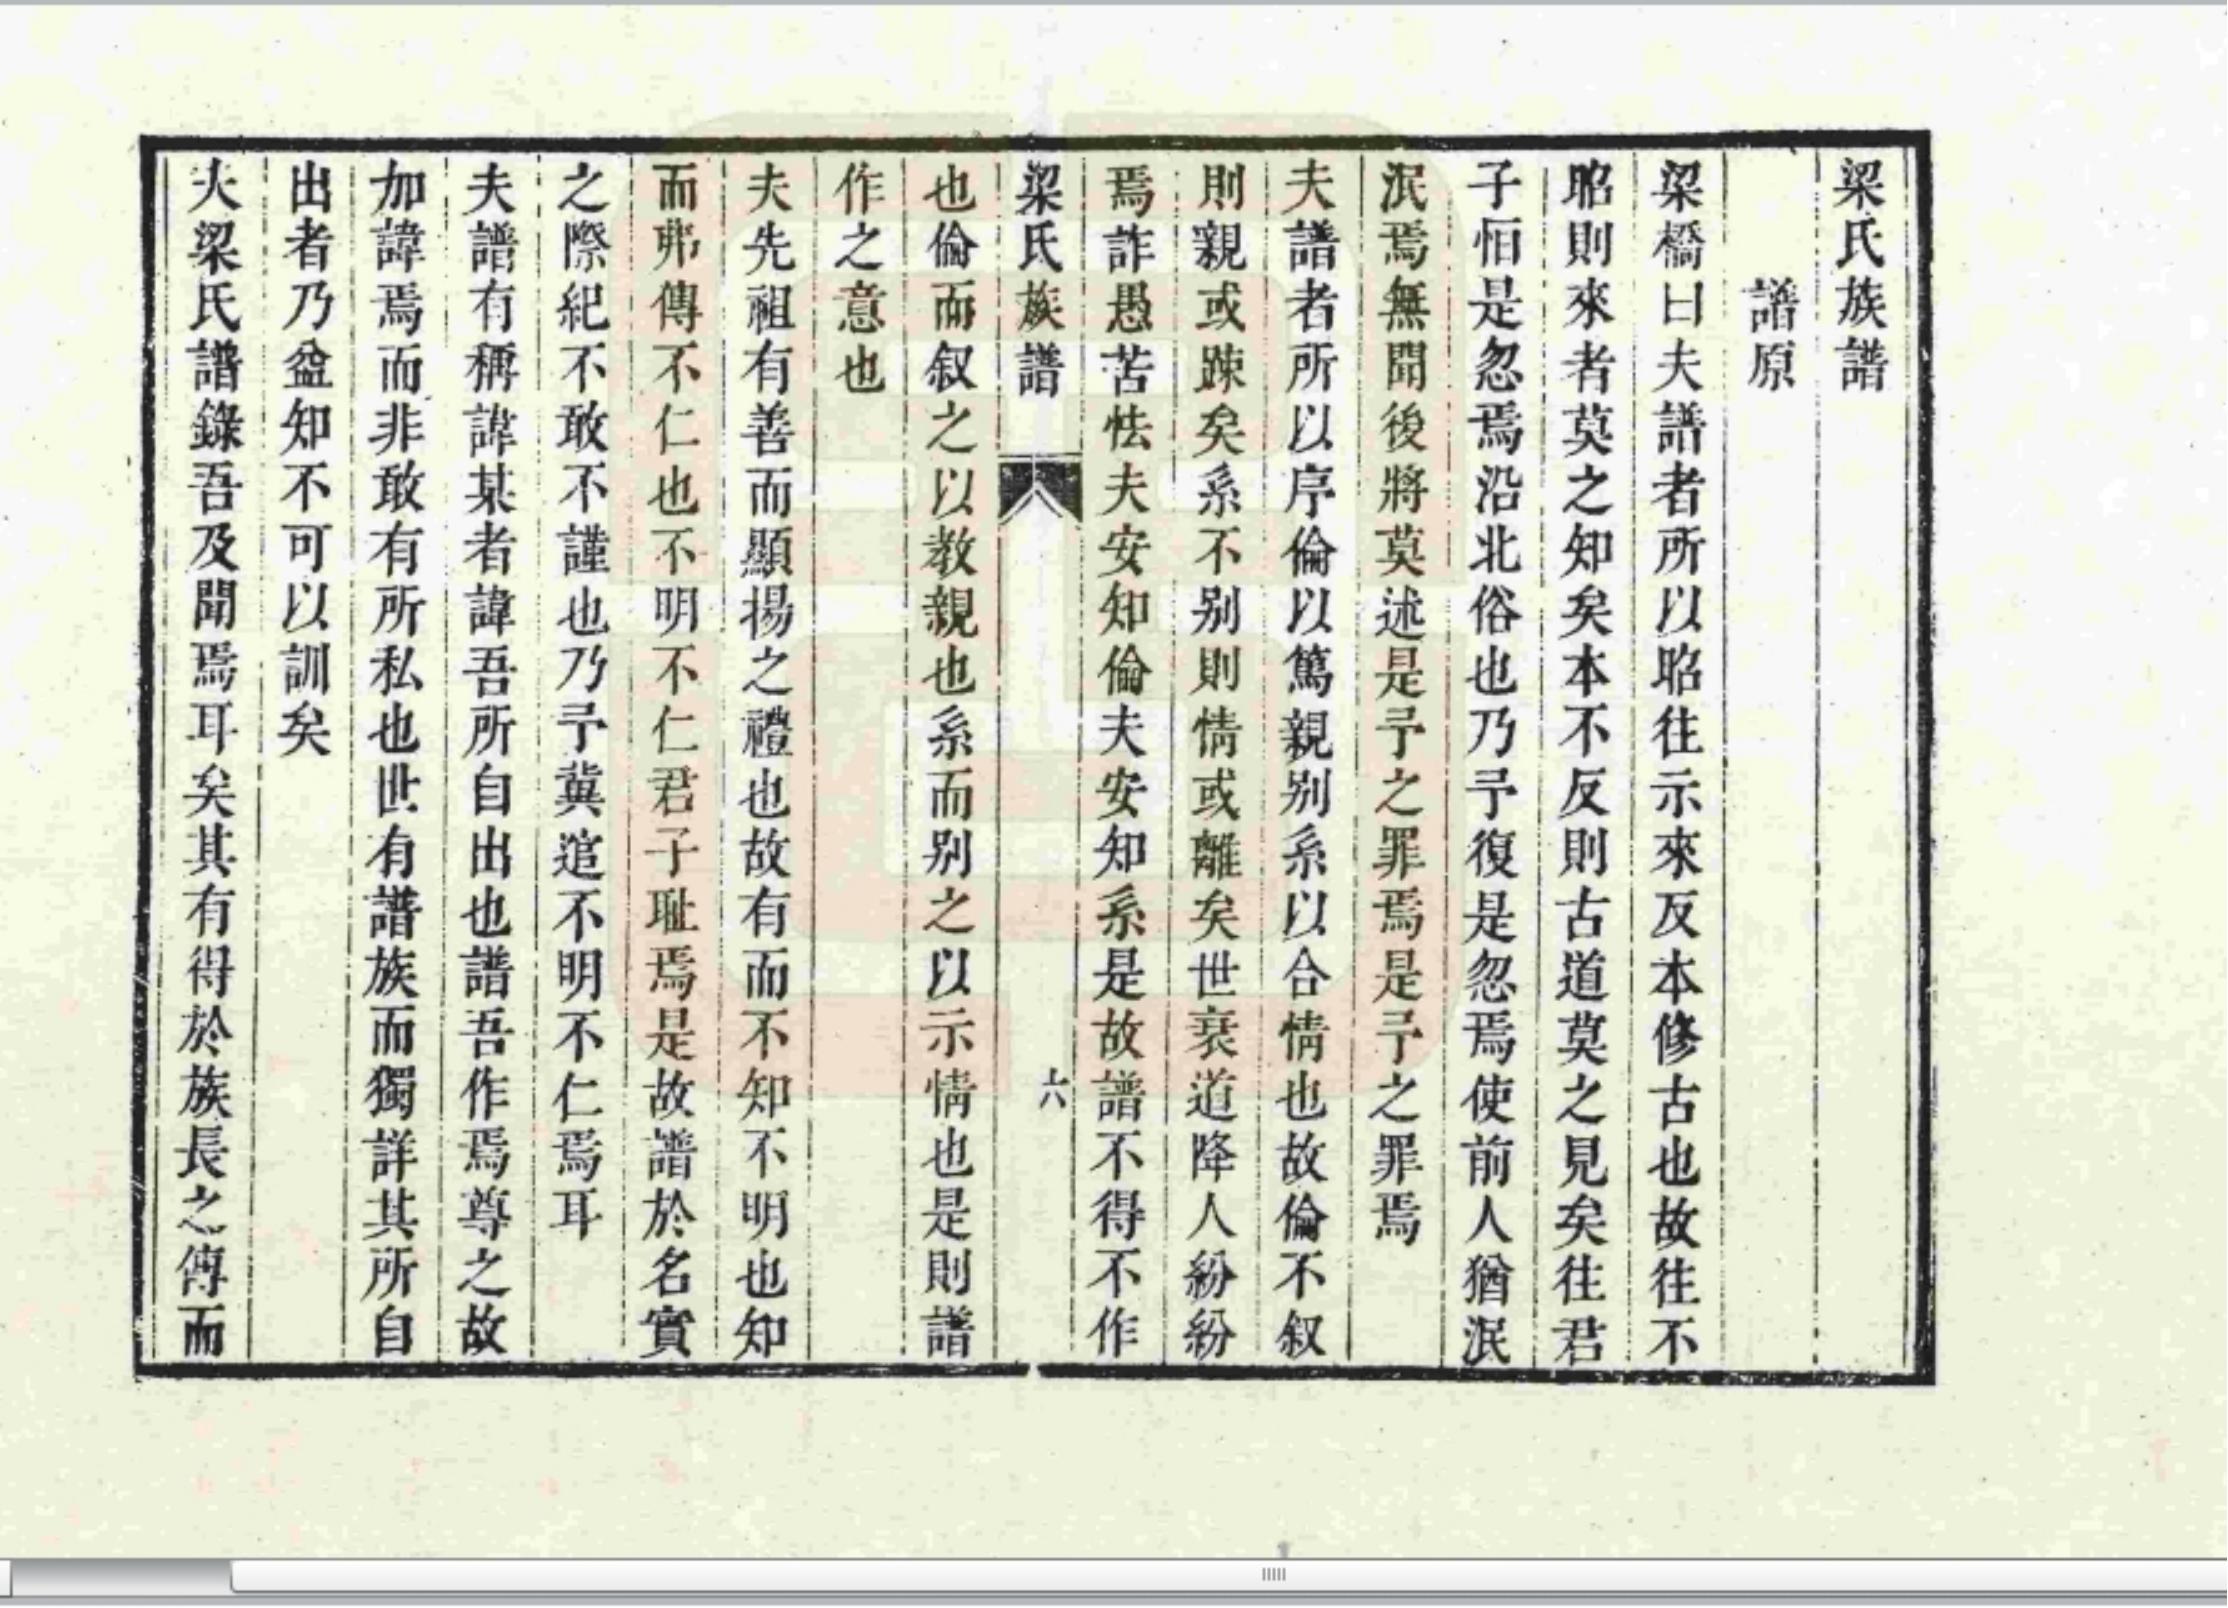 梁氏族譜
譜原
梁橋曰夫譜者所以昭往示來反本修古也故往不
昭則來者莫之知矣本不反則古道莫之見矣往君
子怕是忽焉沿北俗也乃予復是忽焉使前人猶泯
泯焉無聞後將莫述是予之罪焉是予之罪焉
夫譜者所以序倫以篤親别系以合情也故倫不叙
則親或踈矣系不别則情或離矣世衰道降人紛紛
焉詐愚苦怯夫安知倫夫安知系是故譜不得不作
梁氏族譜
六
也倫而叙之以教親也系而别之以示情也是則譜
作之意也
夫先祖有善而顯揚之禮也故有而不知不明也知
而弗傳不仁也不明不仁君子耻焉是故譜於名實
之際紀不敢不謹也乃予冀逭不明不仁焉耳
夫譜有稱諱某者諱吾所自出也譜吾作焉尊之故
加諱焉而非敢有所私也世有譜族而獨詳其所自
出者乃益知不可以訓矣
大梁氏譜錄吾及聞焉耳矣其有得於族長之傳而